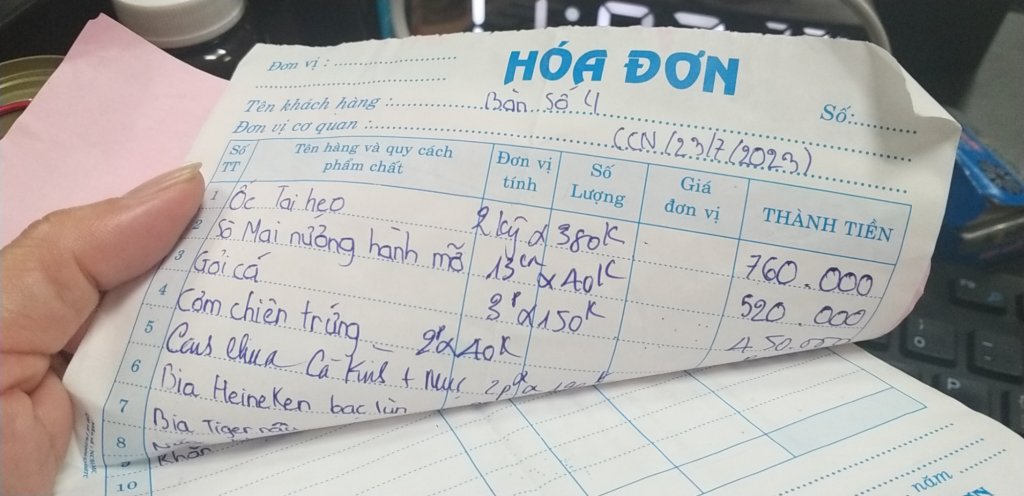 HÓA ĐƠN
Đơn vị :
Tên khách hàng : Bàn Số 4
Số:
Đơn vị cơ quan : CCN/23/7/2023)
Số TT Tên hàng và quy cách phẩm chất Đơn vị tính Số Lượng Giá đơn vị THÀNH TIỀN
1 Ốc Tai heo 2 ký x 380K 760.000
2 Sò Mai nướng hành mỡ 13 x 40K 520.000
3 Gỏi cá 3 x 150K 450.000
4 Cơm chiên trứng - 2 x 40K
5 Canh chua Cá
6 Bia Heineken bạc lùn
7 Bia Tiger
8 Khăn
9
10
năm